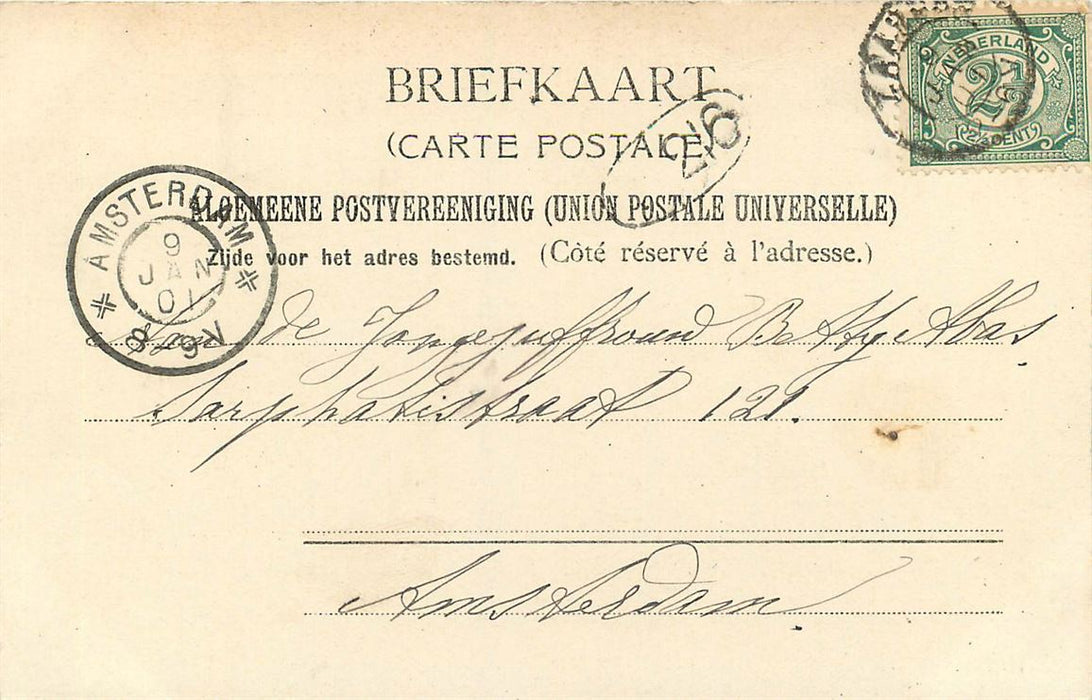 BRIEFKAART
(CARTE POSTALE)
ALGEMEENE POSTVEREENIGING (UNION POSTALE UNIVERSELLE)
Zijde voor het adres bestemd. (Côté réservé à l'adresse.)
NEDERLAND
2½
2½ CENT
AMSTERDAM
9
JAN
01
8-9V
216
de Jongejuffrouw Betsy Abas
Sarphatistraat 121.
Amsterdam